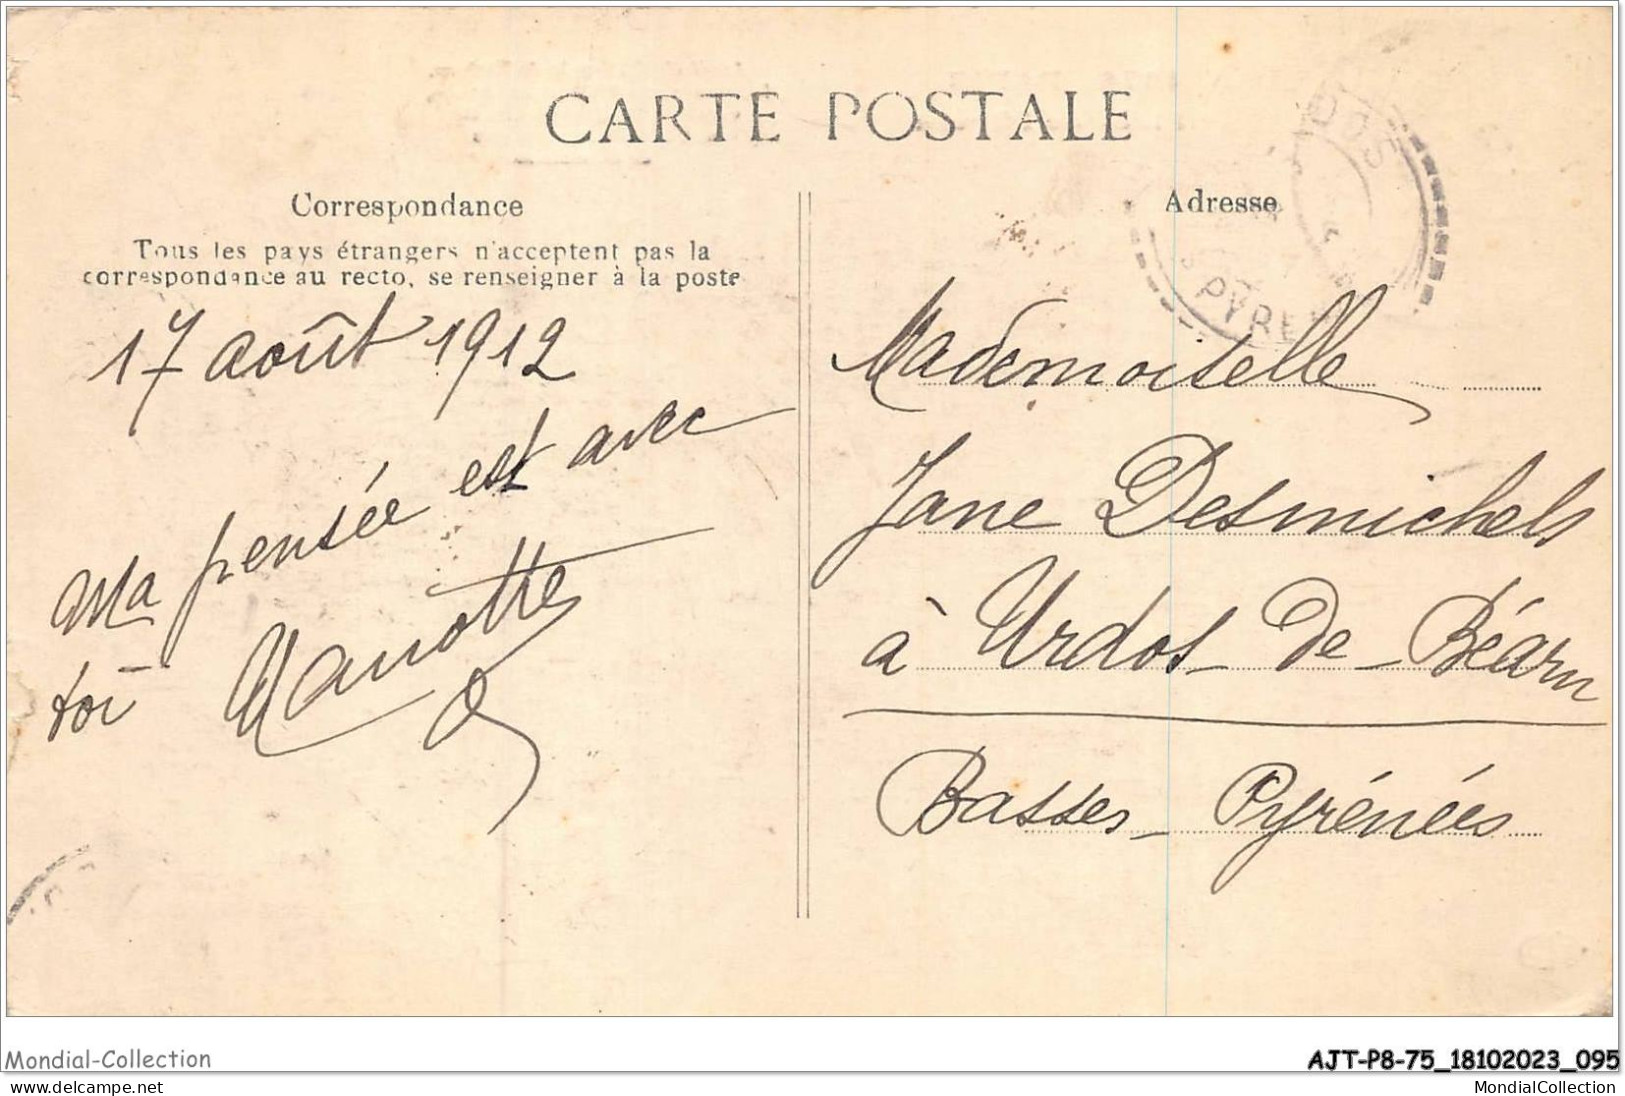 CARTE POSTALE
Correspondance
Tous les pays étrangers n'acceptent pas la
correspondance au recto, se renseigner à la poste
17 août 1912
Ma pensée est avec
toi
Adresse
DOS
PYRE
Mademoiselle
Jane Desmichels
à Urdos de Béarn
Basses-Pyrénées
Mondial-Collection
AJT-P8-75_18102023_095
www.delcampe.net
MondialCollection